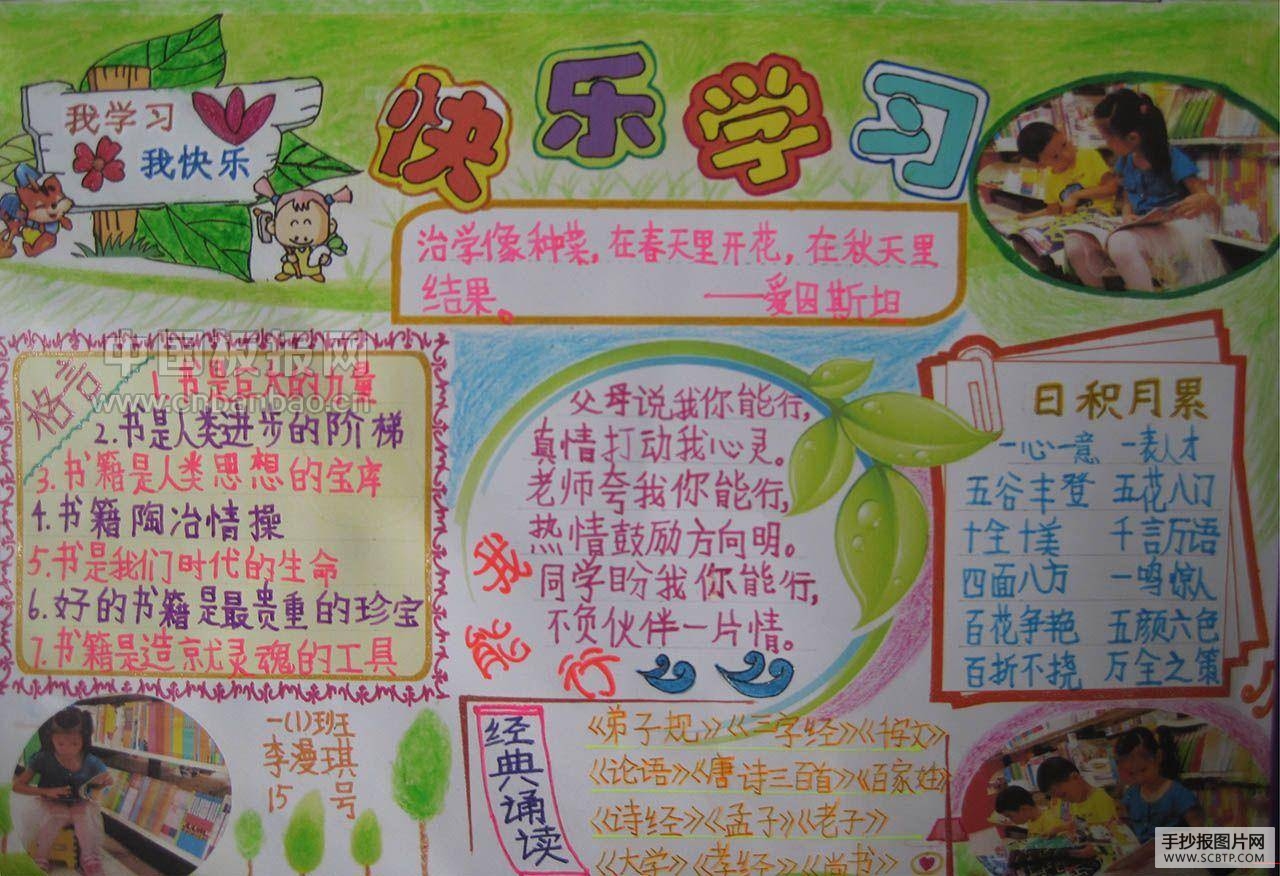 快乐学习
我学习
我快乐
治学像种菜，在春天里开花，在秋天里
结果。 ——爱因斯坦
中国板报网
www.cnbanbao.cn
格言
1.书是巨大的力量
2.书是人类进步的阶梯
3.书籍是人类思想的宝库
4.书籍陶冶情操
5.书是我们时代的生命
6.好的书籍是最贵重的珍宝
7.书籍是造就灵魂的工具
父母说我你能行，
真情打动我心灵。
老师夸我你能行，
热情鼓励方向明。
同学盼我你能行，
不负伙伴一片情。
我能行
日积月累
一心一意 一表人才
五谷丰登 五花八门
十全十美 千言万语
四面八方 一鸣惊人
百花争艳 五颜六色
百折不挠 万全之策
一(1)班
李漫琪
15号
经典诵读
《弟子规》《三字经》《千字文》
《论语》《唐诗三百首》《百家姓》
《诗经》《孟子》《老子》
《大学》《孝经》《尚书》
手抄报图片网
WWW.SCBTP.COM